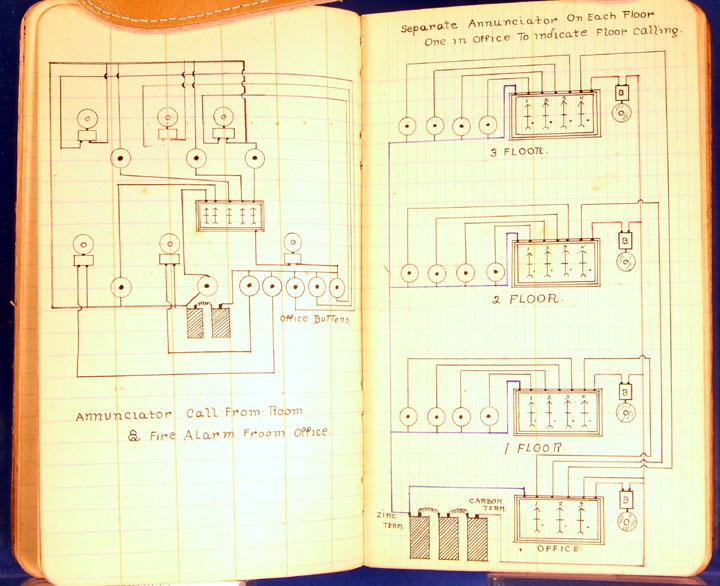 Office Buttons
Annunciator Call From Room
& Fire Alarm Froom Office.
Separate Annunciator On Each Floor
One in Office To Indicate Floor Calling.
1 2 3 4
B
3 FLOOR.
1 2 3 4
B
2 FLOOR.
1 2 3 4
B
1 FLOOR
ZINC
TERM.
CARBON
TERM.
1 2 3
B
OFFICE.